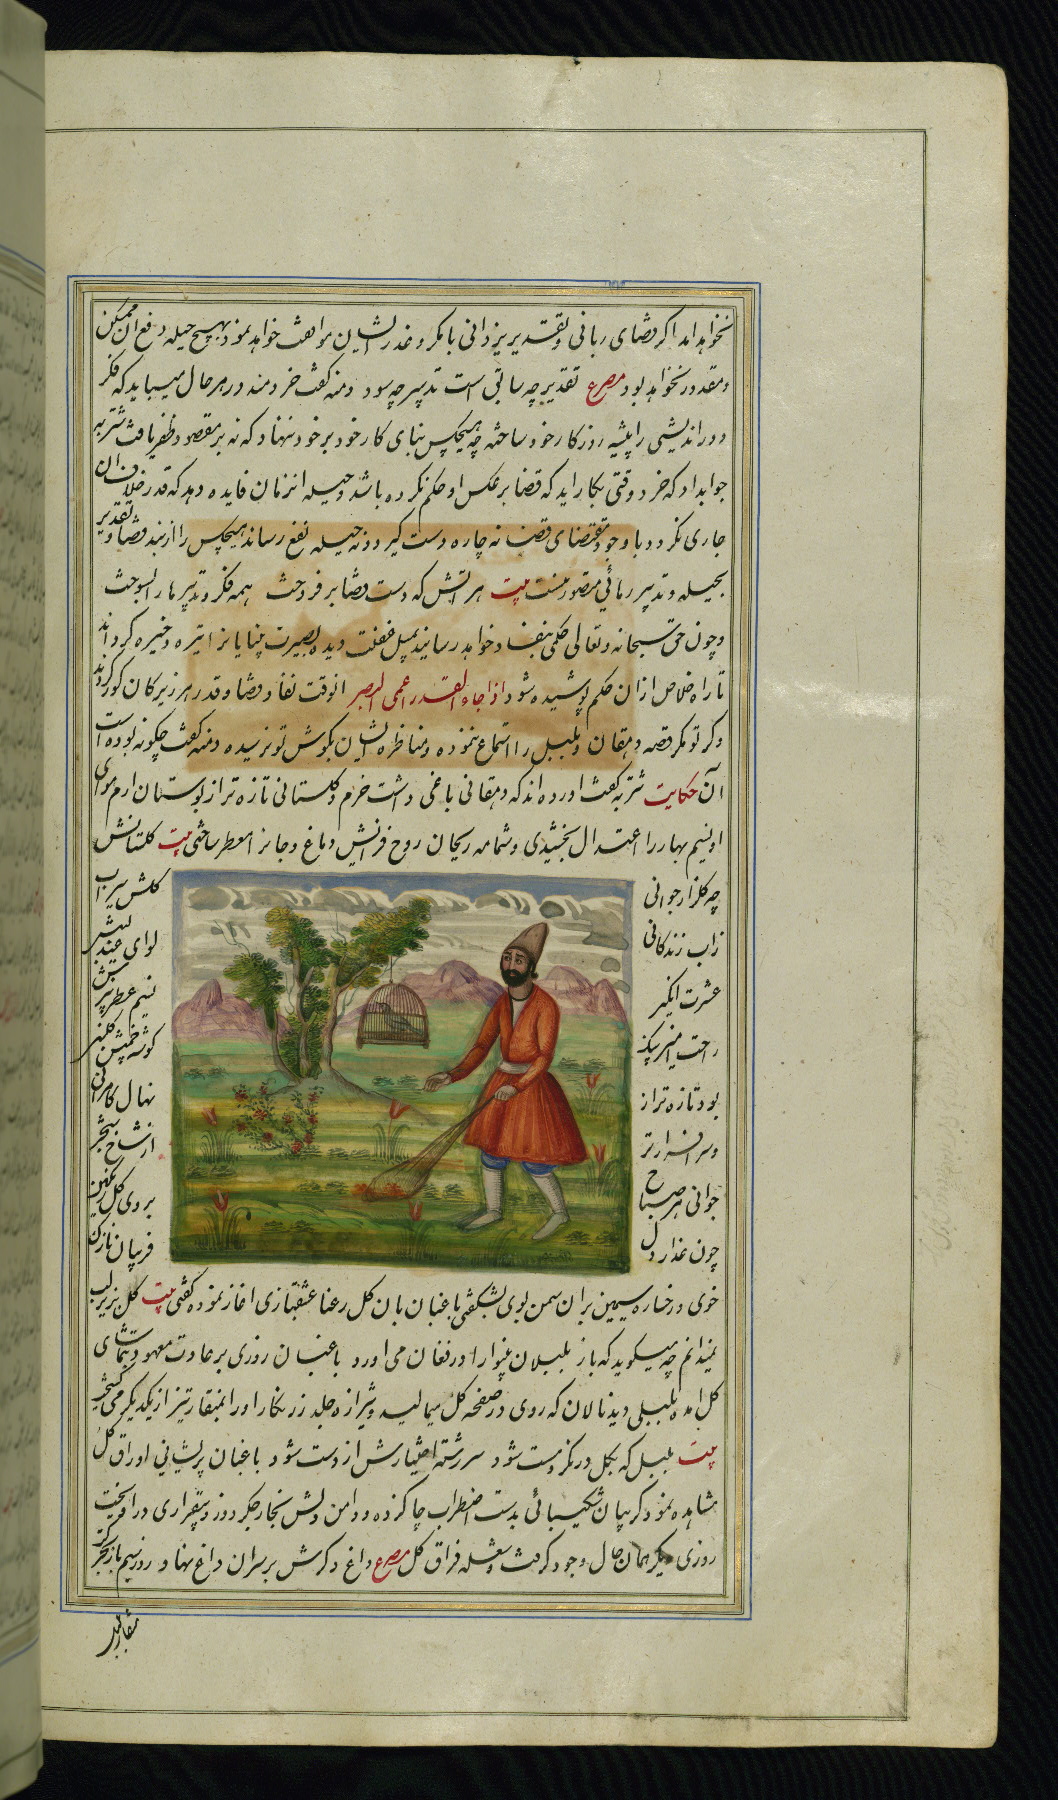 نخواهد آمد اگر قضای ربانی و تقدیر یزدانی با مکر و غدر ایشان موافقت خواهد نمود بهیچ حیله دفع آن ممکن
و مقدور نخواهد بود مصرع تقدیر چه سابق است تدبیر چه سود دمنه گفت خردمند در هر حال میباید که فکر
و دوراندیشی را پیشه روزگار خود ساخته چه هیچکس بنای کار خود بر خرد ننهاد که نه بر مقصود ظفر یافت شتربه
جواب داد که خرد وقتی بکار اید که قضا بر عکس او حکم نکرده باشد و حیله انزمان فایده دهد که قدر خلاف آن
جاری نگردد و با وجود مقتضای قضا نه چاره دست گیرد و نه حیله نفع رساند هیچکس را از بند قضا و تقدیر
بحیله و تدبیر رهائی متصور نیست بیت هر اتش که دست قضا برفروخت همه فکر و تدبیر ها را بسوخت
و چون حق سبحانه و تعالی حکمی بنفاذ خواهد رسانید بمیل غفلت دیده بصیرت بینایانرا تیره و خیره گرداند
تا راه خلاص از ان حکم پوشیده شود اذا جاء القدر اعمی البصر انوقت نفاذ قضا و قدر هر زیرکان کور گردند
و کر تو مکر قصه دهقان و بلبل را استماع ننموده و مناظره ایشان بکوش تو نرسیده دمنه گفت چکونه بوده است
آن حکایت شتربه گفت اورده اند که دهقانی باغی داشت خرم و گلستانی تازه تر از بوستان ارم هوای
او نسیم بهار را اعتدال بخشیدی و شمامه ریحان روح افزایش دماغ جانرا معطر ساختی بیت گلستانش
چه گلزار جوانی گلش سیراب
زاب زندگانی نوای عندلیبش
عشرت انگیز نسیم عطر بیزش
راحت امیز یک گوشه چمنش گلبنی
بود تازه تر از نهال کامرانی
و سرافرازتر از شاخ شجر
جوانی هر صباح بر روی گل رنگین
چون عذار دل فریبان نازک
خوی و رخساره سیمین بران سمن بوی بشکفتی باغبان بان گل رعنا عشقبازی اغاز نموده گفتی بیت گل بزیر لب
نمیدانم چه میگوید که باز بلبلان بینوا را در فغان می اورد باغبان روزی بر عادت معهود بتماشای
گل امده بلبلی دید نالان که روی در صفحه گل میمالید و شیرازه جلد زرنگار او را بمنقار تیز از یکدیگر می گسیخت
بیت بلبل که بگل در نگرد مست شود سررشته اختیارش از دست شود باغبان پریشانی اوراق گل
مشاهده نمود گریبان شکیبائی بدست اضطراب چاک زده و دامن دلش بخار جگردوز بیقراری در اویخت
روزی دیگر همان حال وجود گرفت و شعله فراق گل مصرع داغ دگرش بر سر ان داغ نهاد روز سیم باز بحرکت
منقار بلبل